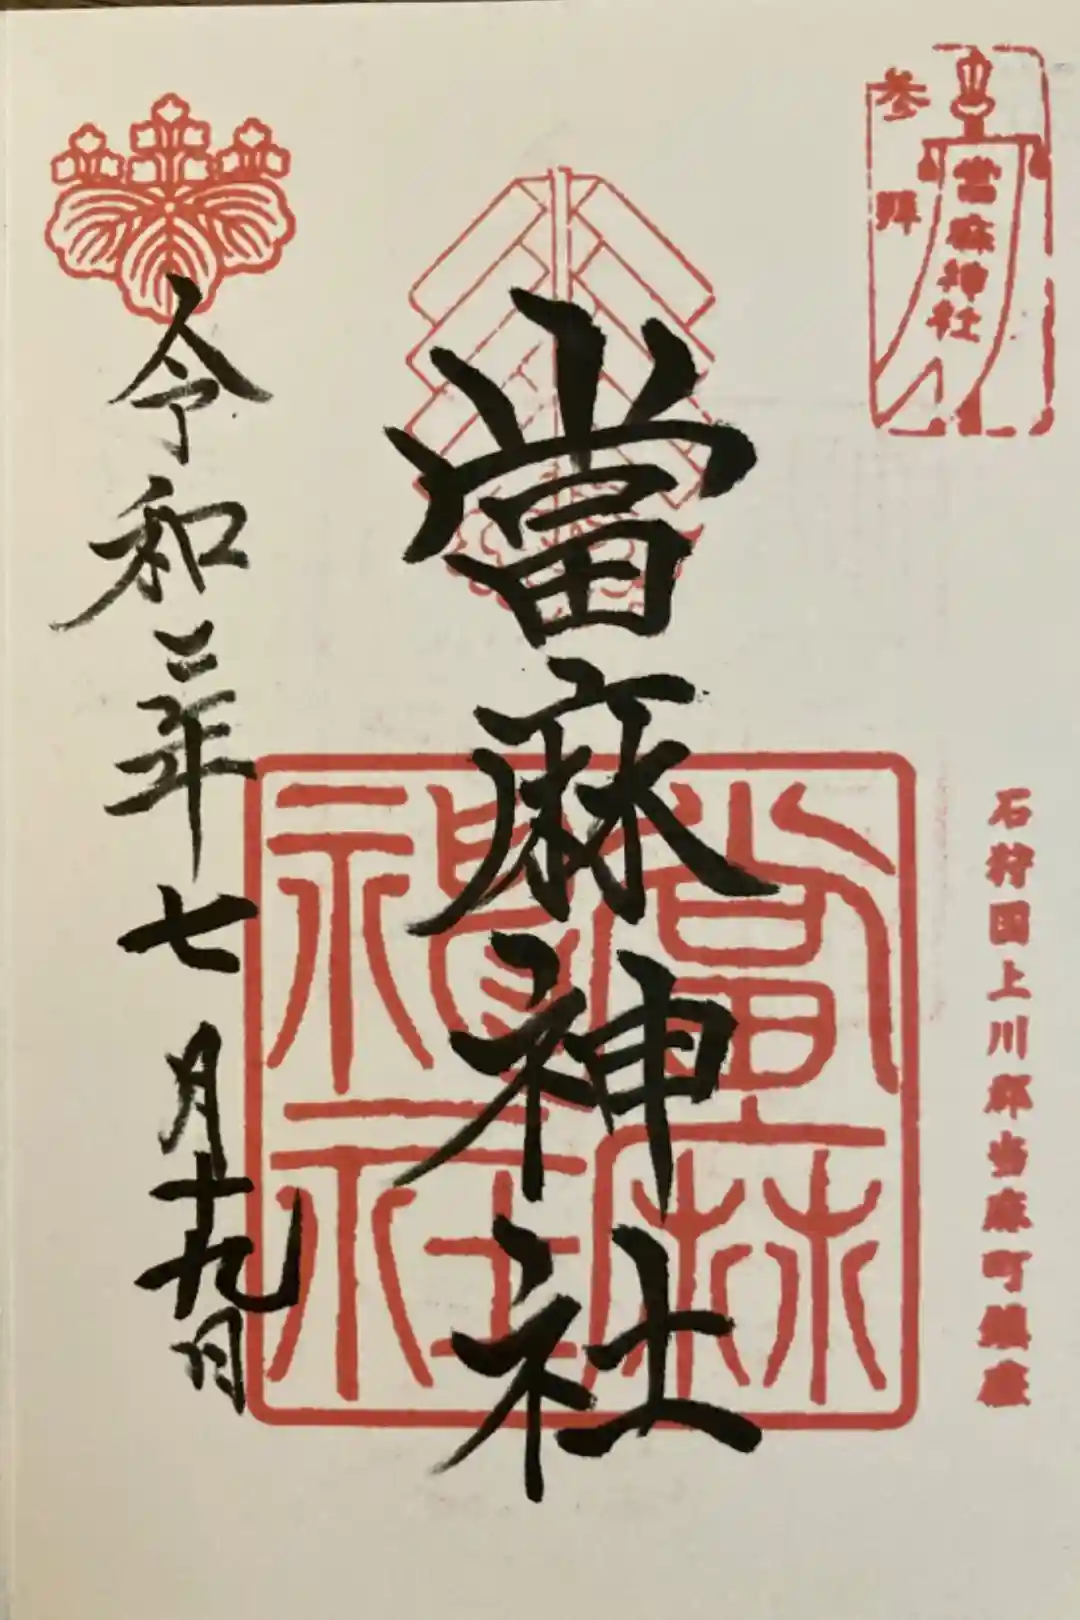 参拝
當麻神社
石狩国上川郡当麻町鎮座
當麻神社
當麻神社
令和三年七月十九日